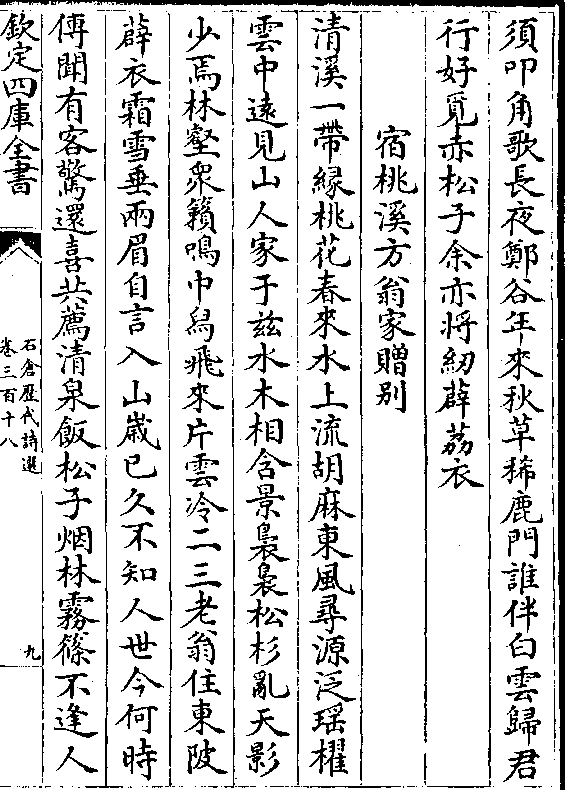 須叩角歌長夜鄭谷年來秋草稀鹿門誰伴白雲歸君
行好覓赤松子余亦將紉薜荔衣
宿桃溪方翁家贈别
清溪一帶緣桃花春來水上流胡麻東風尋源泛瑶櫂
雲中逺見山人家于兹水木相含景裊裊松杉亂天影
少焉林壑衆籟鳴巾舄飛來片雲冷二三老翁住東陂
薜衣霜雪垂兩眉自言入山嵗已久不知人世今何時
傳聞有客驚還喜共薦清泉飯松子烟林霧篠不逢人
欽定四庫全書
石倉歷代詩選
卷三百十八
九